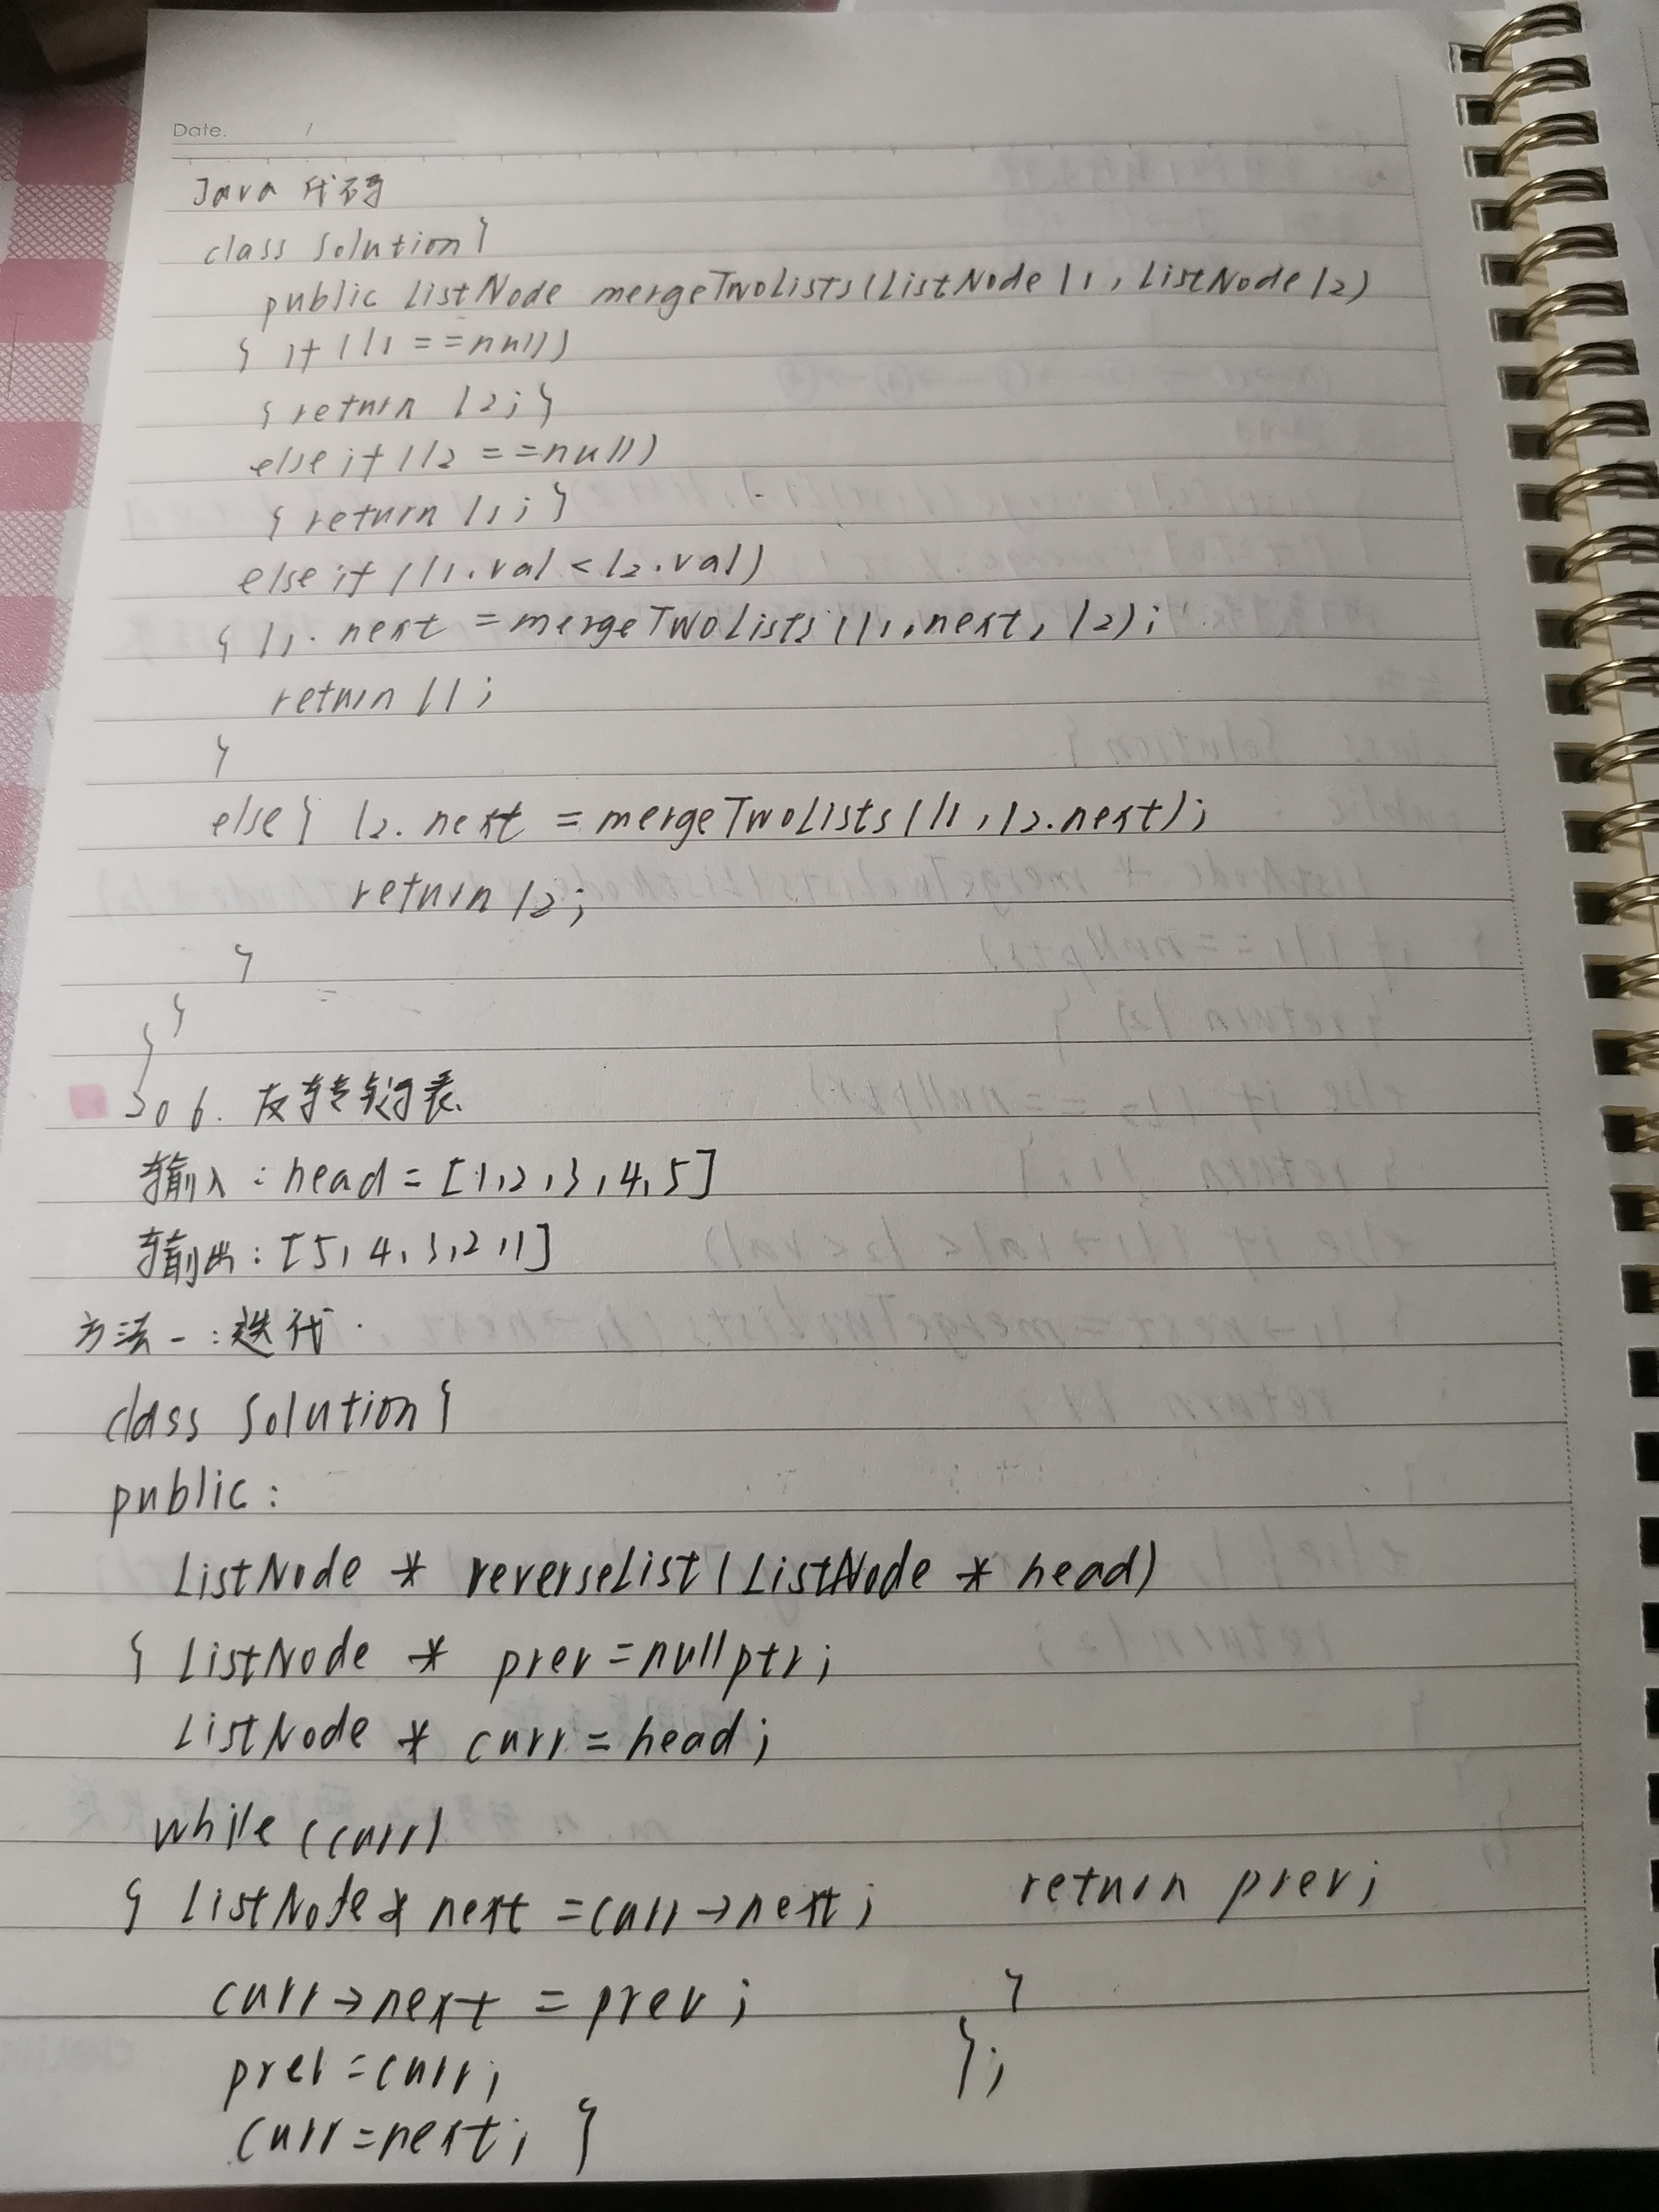 Date. /
Java 代码
class Solution{
public ListNode mergeTwoLists(ListNode l1, ListNode l2)
{ if (l1 == null)
{ return l2; }
else if (l2 == null)
{ return l1; }
else if (l1.val < l2.val)
{ l1.next = mergeTwoLists(l1.next, l2);
return l1;
}
else{ l2.next = mergeTwoLists(l1, l2.next);
return l2;
}
}
}
206. 反转链表
输入: head = [1,2,3,4,5]
输出: [5,4,3,2,1]
方法一: 迭代.
class Solution{
public:
ListNode * reverseList(ListNode * head)
{ ListNode * prev = nullptr;
ListNode * curr = head;
while (curr)
{ ListNode * next = curr→next;
curr→next = prev;
prev = curr;
curr = next; }
return prev;
}
};